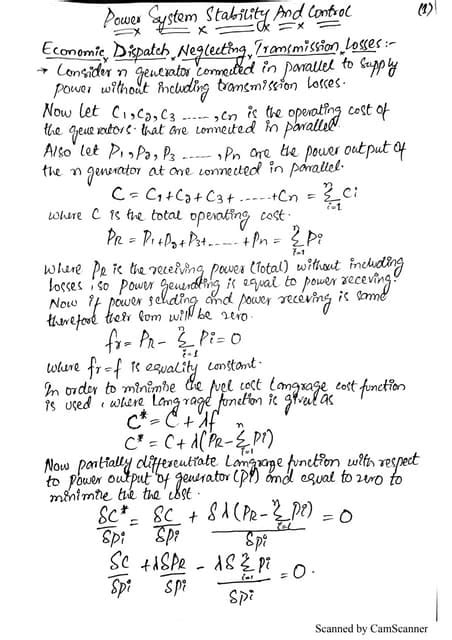 Power System Stability And Control (1)
Economic Dispatch Neglecting Transmission Losses:-
→ Consider n generator connected in parallel to supply
power without including transmission losses.
Now let C1, C2, C3 ------, Cn is the operating cost of
the generators that are connected in parallel.
Also let P1, P2, P3 ------, Pn are the power output of
the n generator at are connected in parallel.
C = C1+C2+C3+------+Cn = Σ(i=1 to n) Ci
where C is the total operating cost.
PR = P1+P2+P3+------+Pn = Σ(i=1 to n) Pi
where PR is the receiving power (total) without including
losses, so power generating is equal to power receving.
Now if power sending and power receving is same
therefore their som will be zero.
fr = PR - Σ(i=1 to n) Pi = 0
where fr = f is equality constant.
In order to minimise the fuel cost Langrage cost function
is used, where Langrage function is given as
C* = C + λf
C* = C + λ(PR - Σ(i=1 to n) Pi)
Now partially differentiate Langrage function with respect
to Power output of generator (Pi) and equal to zero to
minimise the the cost.
δC*/δPi = δC/δPi + δλ(PR - Σ(i=1 to n) Pi)/δPi = 0
δC/δPi + λδPR/δPi - λδ Σ(i=1 to n) Pi/δPi = 0.
Scanned by CamScanner